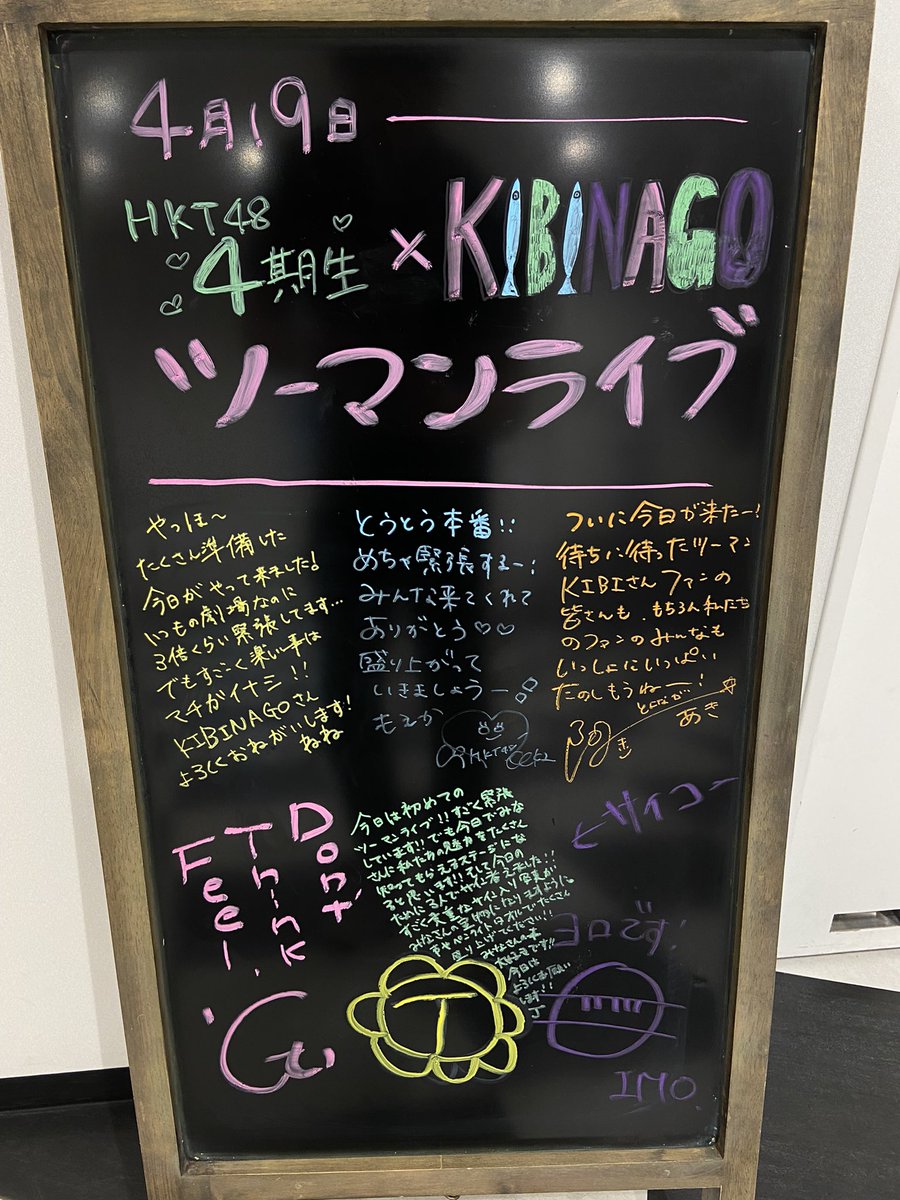 4月19日
HKT48
4期生 × KIBINAGO
ツーマンライブ
やっほ〜
たくさん準備した
今日がやって来ました!
いつもの劇場なのに
3倍くらい緊張してます…
でもすごく楽しい事は
マチガイナシ!!
KIBINAGOさん
よろしくおねがいします!
ねね
とうとう本番!!
めちゃ緊張するー!
みんな来てくれて
ありがとう♡♡
盛り上がって
いきましょうー
もえか
HKT48
ついに今日が来たー!
待ちに待ったツーマン
KIBIさんファンの
皆さんも、もちろん私たち
のファンのみんなも
いっしょにいっぱい
たのしもうねー!
あき
Don't
Think
Feel.
今日は初めての
ツーマンライブ!!すごく緊張
しています!!でも今日でみな
さんに私たちの魅力をたくさん
知ってもらえるステージにな
ると思います!!そして今日の
みなさんの本
大好きです!!
今日は
よろしくお願い
します!!
J
T
サイコー
ヨロです!
IMO